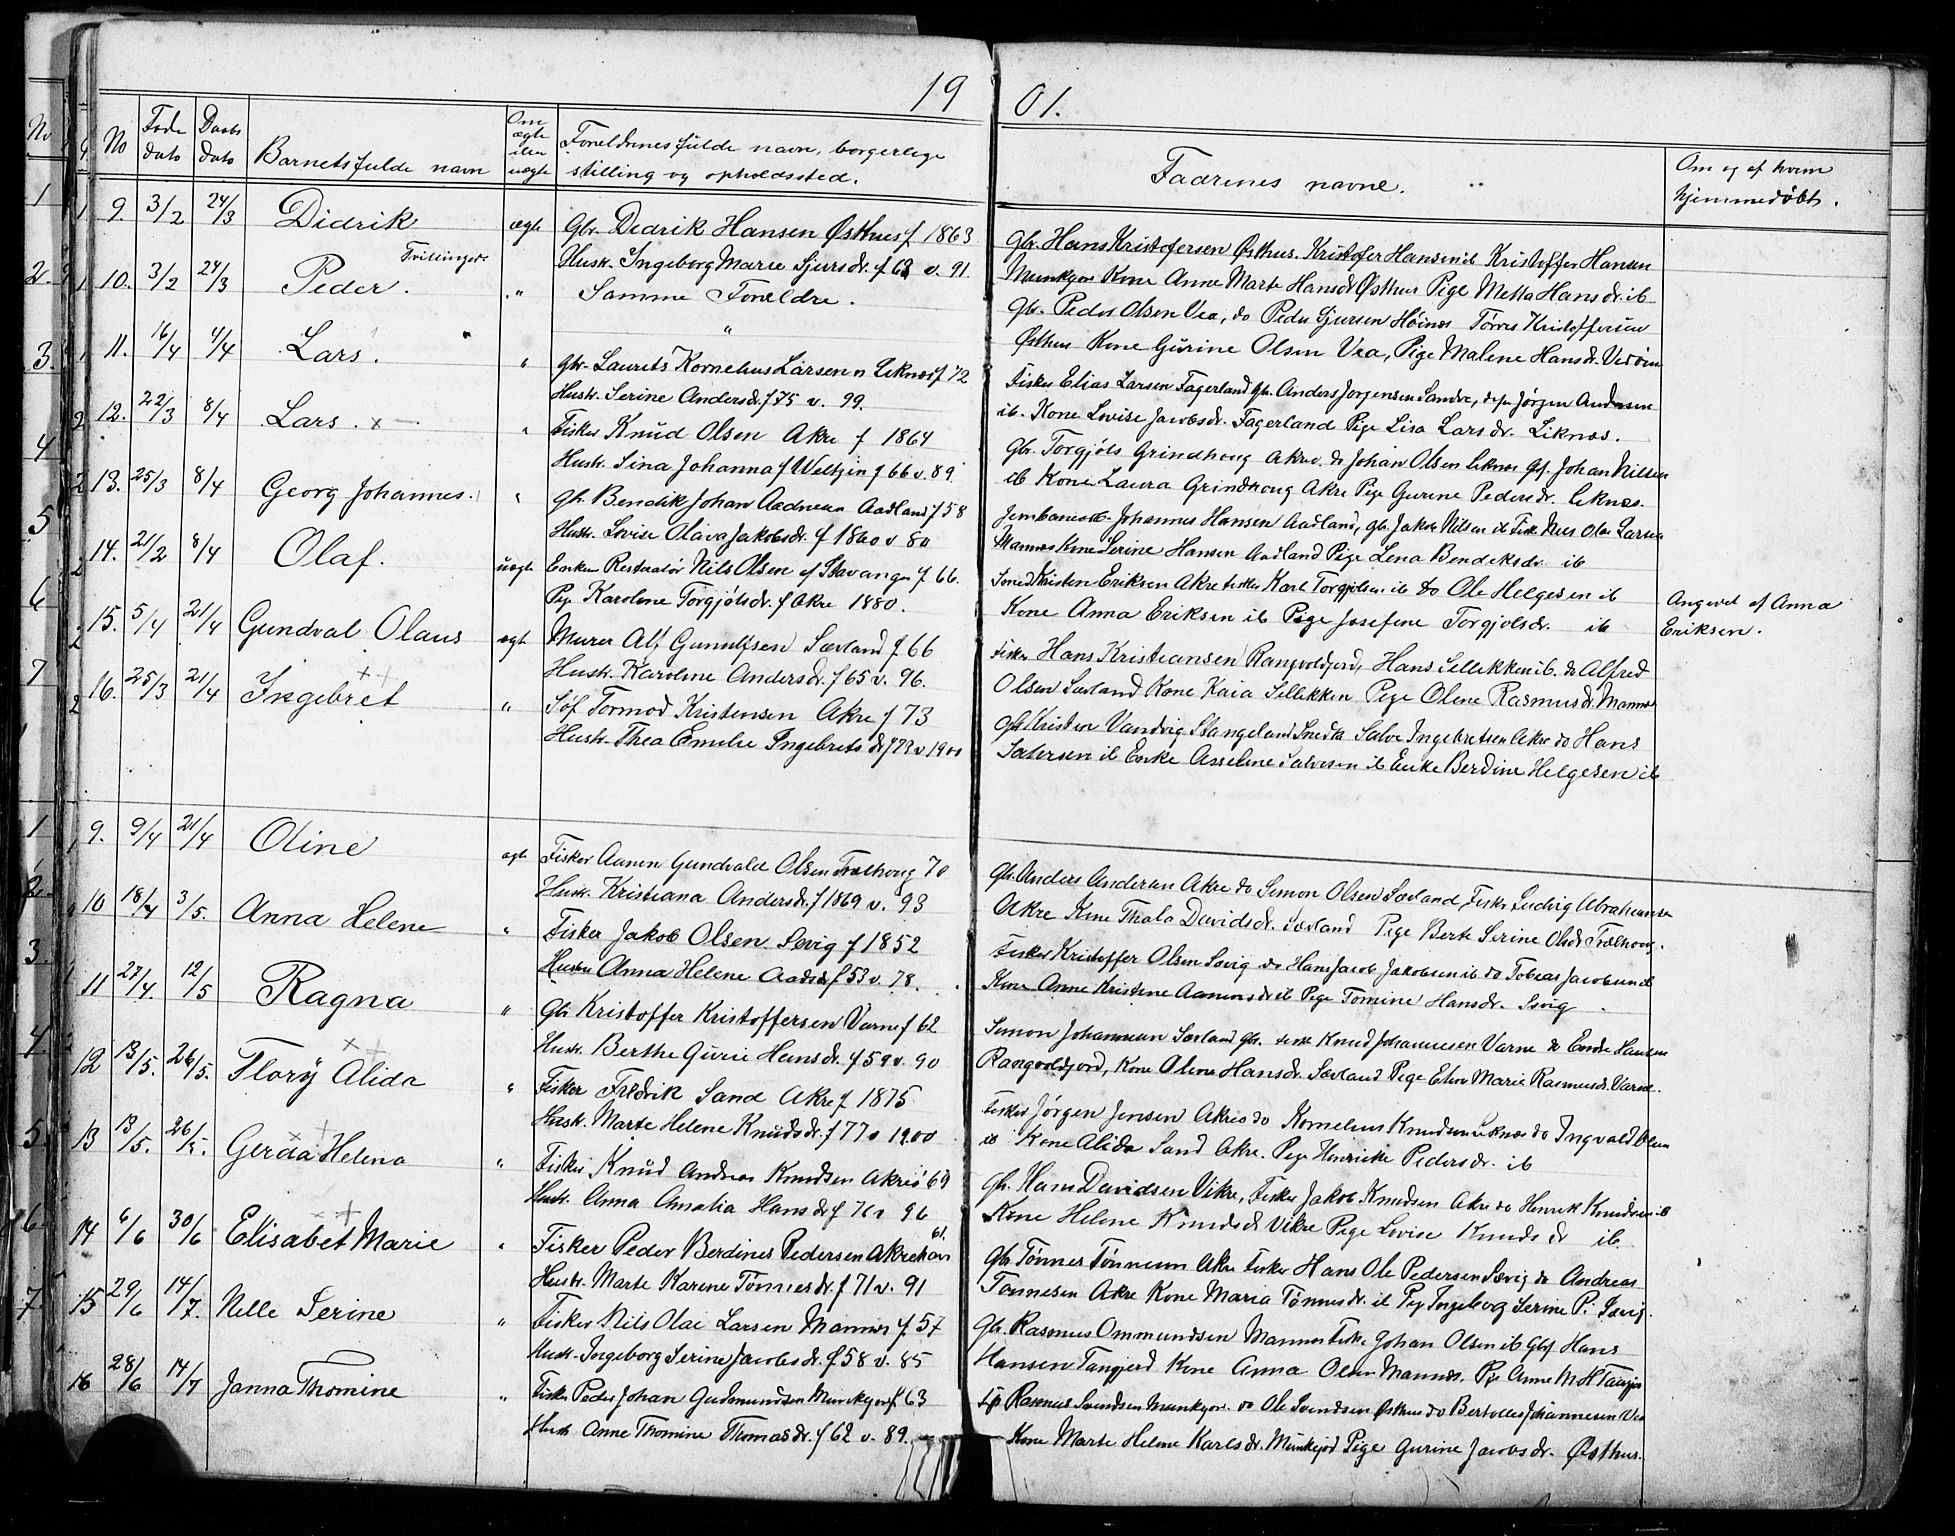 19 01.
No Føde dato Daabs dato Barnets fulde navn Om ægte eller uægte Foreldrenes fulde navn, borgerlige stilling og opholdssted. Fadrenes navne. Om og af hvem hjemmedøbt.
9. 3/2 24/3 Didrik ægte Gbr. Dedrik Hansen Østhus f 1863
Hustr. Ingeborg Marie Sjursdr. f 62 v. 91.
Gbr. Hans Kristofersen Østhus. Kristofer Hansen ib Kristoffer Hansen
Munkejor Kone Anne Marte Hansdr Østhus Pige Metta Hansdr. ib
Tvillinger
10. 3/2 24/3 Peder. " Samme Foreldre.
"
Gbr. Peder Olsen Vea, do Peder Sjursen Høines Tørres Kristoffersen
Østhus Kone Gurine Olsen Vea, Pige Malene Hansdr.
11. 16/4 4/4 Lars. " Gbr. Laurits Kornelius Larsen Liknes f 72
Hustr. Serine Andersdr. f 75 v. 99.
Fisker Elias Larsen Fagerland Gbr. Anders Jørgensen Sandve, Jørgen Andersen
ib. Kone Lovise Jacobsdr. Fagerland Pige Lisa Larsdr. Liknes.
12. 22/3 8/4 Lars. x " Fisker Knud Olsen Akre f 1864
Hustr. Sina Johanna f Weltzin f 66 v. 89.
Gbr. Torgjøls Grindhoug Akre. do Johan Olsen Liknes Johan Nilsen
ib Kone Laura Grindhoug Akre Pige Gurine Pedersdr. Liknes.
13. 25/3 8/4 Georg Johannes. " Gbr. Bendik Johan Aadnesen Aadland f 58
Hustr. Lovise Olava Jakobsdr. f 1860 v 80
Johannes Hansen Aadland, Gbr. Jakob Nilsen ib Fisk Nils Olai Larsen
Mannes Kone Serine Hansen Aadland Pige Lena Bendiksdr. ib
14. 21/2 8/4 Olaf. uægte Enkem Nils Olsen af Stavanger f 66.
Pige Karoline Torgjølsdr. f Akre 1880.
Kristen Eriksen Akre Fisker Karl Torgjølsen ib do Ole Helgesen ib
Kone Anna Eriksen ib Pige Josefine Torgjolsdr. ib
Angivet af Anna
Eriksen.
15. 5/4 21/4 Gundval Olaus ægte Murer Alf Gunulfsen Sævland f 66
Hustr. Karoline Andersdr. f 65 v. 96.
Fisker Hans Kristiansen Rangvoldjord, Hans Sellikken ib. do Alfred
Olsen Sævland Kone Kaia Sillikken Pige Oline Rasmusdr. Mannes
16. 25/3 21/4 Ingebret " Søf Tormod Kristensen Akre f 73
Hustr. Thea Emilie Ingebretsdr f 73 v 1900
Gbr. Kristen Vandvig Stangeland Snedk Salve Ingebretsen Akre do Hans
Salvesen ib Enke Asseline Salvesen ib Enke Berdine Helgesen ib
9. 9/4 21/4 Oline ægte Fisker Aanen Gundvald Olsen Trælhoug 70
Hustr. Kristiana Andersdr. f 1869 v. 93
Gbr. Anders Andersen Akre do Simon Olsen Sævland, Fisker Ludvig Abrahamsen
Akre Kone Thala Davidsdr. Sævland Pige Berte Serine Olsdr Trælhoug.
10 18/4 3/5. Anna Helene " Fisker Jakob Olsen Sevig f 1852
Hustru Anna Helene Aadsdr f 53 v. 78.
Fisker Kristoffer Olsen Sævig do Hans Jacob Jakobsen ib do Tobias Jacobsen ib
Kone Anne Kristine Aanensdr ib Pige Tomine Hansdr. Sevig.
11 27/4. 12/5 Ragna " Gbr Kristoffer Kristoffersen Varne f 62
Hustr. Berthe Gurie Hansdr. f 59 v. 90
Simon Johannesen Sævland Gbr. Fisk Knud Johannesen Varne do Endre Hansen
Rangvoldjord, Kone Oline Hansdr. Sævland Pige Elen Marie Rasmusdr. Varne.
12 13/5. 26/5. Flory Alida " Fisker Fredrik Sand Akre f 1875
Hustr. Marte Helene Knudsdr. f 77 v 1900
Fisker Jørgen Jensen Akre do Kornelius Knudsen Liknes do Ingvald Olsen
ib Kone Alida Sand Akre. Pige Henrikke Pedersdr. ib
13 13/5. 26/5. Gerda Helena " Fisker Knud Andreas Knudsen Akre 69
Hustr. Anna Amalia Hansdr f 71 v 96
Gbr. Hans Davidsen Vikre, Fisker Jakob Knudsen Akre do Henrik Knudsen ib
Kone Helene Knudsdr Vikre Pige Lovise Knudsdr ib.
14 6/6 30/6 Elisabet Marie " Fisker Peder Berdines Pedersen Akrehavn 61.
Hustr. Marte Karine Tønnesdr. f 71 v. 91
Gbr Tønnes Tønnesen Akre Fisker Hans Ole Pedersen Sævig do Andreas
Tønnesen Akre Kone Maria Tønnesdr. ib Pige Ingeborg Serine P. Sævig.
15 29/6 14/7. Nelle Serine " Fisker Nils Olai Larsen Mannes f 57
Hustr. Ingeborg Serine Jacobsdr. f 58 v. 85
Gbr. Rasmus Ommundsen Mannes Fisk. Johan Olsen ib Gbf Hans
Hansen Tangjerd Kone Anna Olsen Mannes. Pige Anne M H Tangjer
16 28/6 14/7 Janna Thomine " Fisker Peder Johan Gudmundsen Munkejor f 63
Hustr Anne Thomine Thomasdr. f 62 v. 89.
Rasmus Svendsen Munkejor. do Ole Svendsen Østhus do Bertolles Johannesen Vea
Kone Marte Helene Karlsdr. Munkejord Pige Gurine Jacobsdr. Østhus.